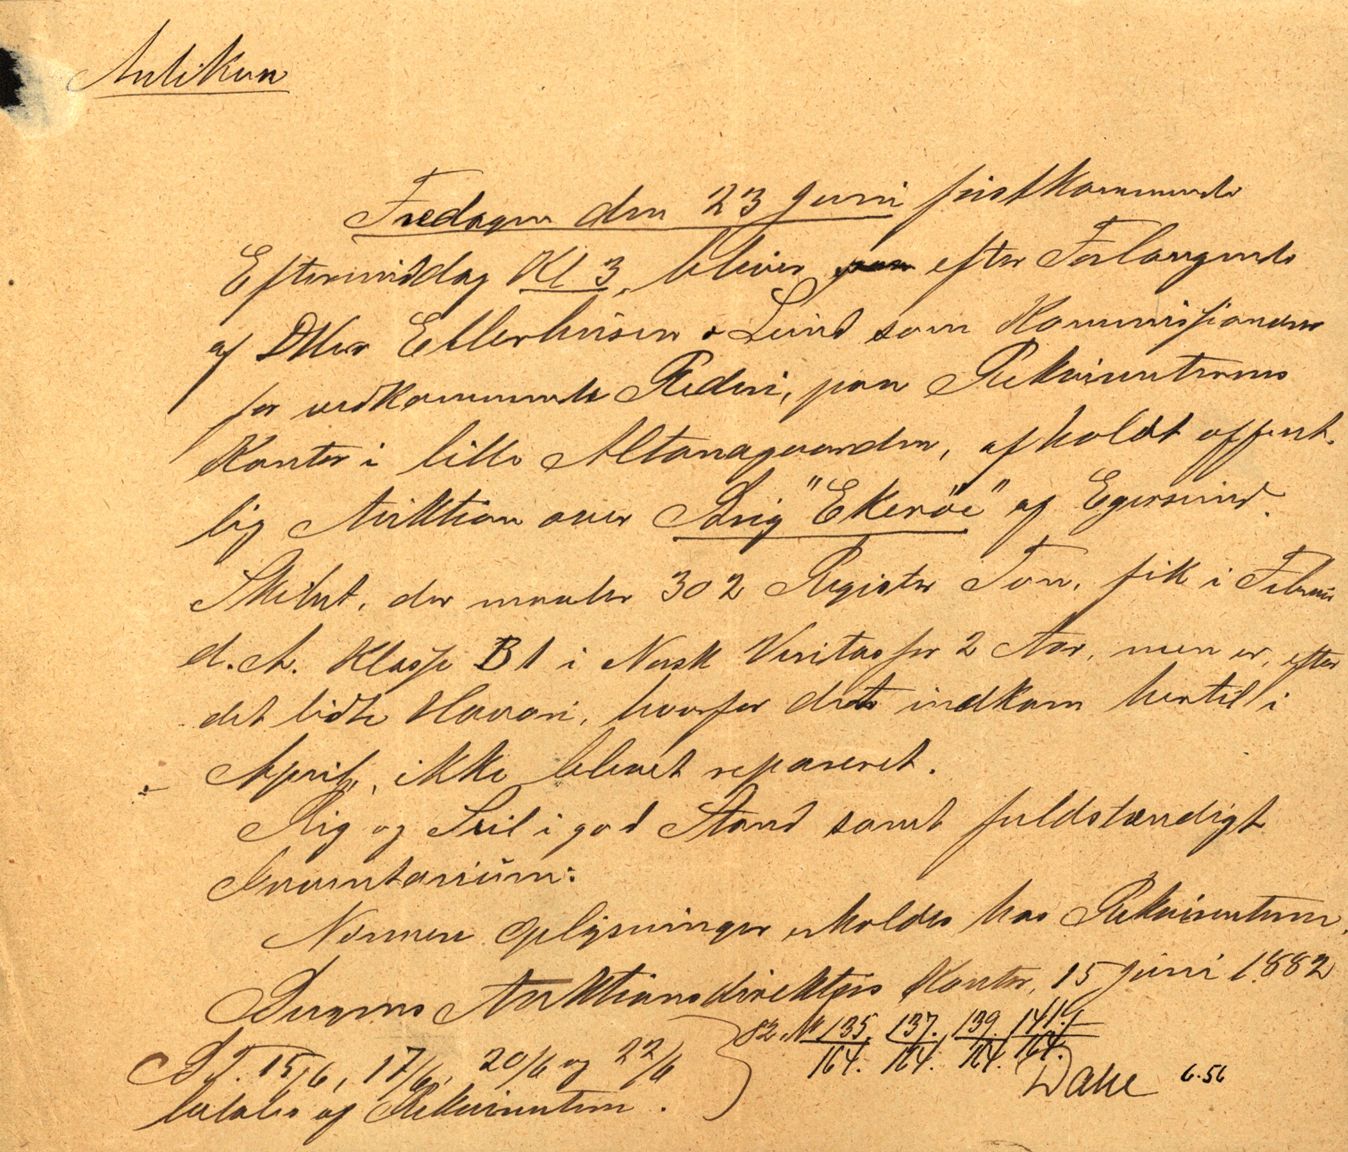 Auktion
Fredagen den 23 Juni førstkommende
Eftermiddag Kl 3, bliver efter Forlangende
af DHrr Ellerhusen & Lund som Kommissionærer
for vedkommende Rederi, paa Rekvirenternes
Kontor i lille Altonagaarden, afholdt offent-
lig Auktion over Brig "Ekeröe" af Egersund.
Skibet, der maaler 302 Register Ton, fik i Februar
d. A. Klasse B 1 i Norsk Veritas for 2 Aar, men er, efter
det lidte Havari, hvorfor det indkom hertil i
April, ikke blevet repareret.
Rig og Seil i god Stand samt fuldstændigt
Inventarium:
Nærmere Oplysninger erholdes hos Rekvirenterne,
Bergens Auktionsdirektørs Kontor, 15 Juni 1882
82. No 135/164. 137./164. 139./164. 141./164.
B. T. 15/6, 17/6, 20/6 og 22/6
betales af Rekvirenterne.
6.56